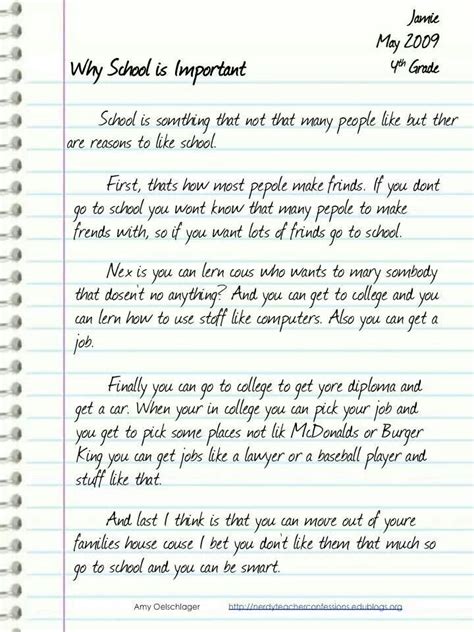 Jamie
May 2009
Why School is Important
4th Grade
School is somthing that not that many people like but ther
are reasons to like school.
First, thats how most pepole make frinds. If you dont
go to school you wont know that many pepole to make
frends with, so if you want lots of frinds go to school.
Nex is you can lern cous who wants to mary sombody
that dosen't no anything? And you can get to college and you
can lern how to use stoff like computers. Also you can get a
job.
Finally you can go to college to get yore diploma and
get a car. When your in college you can pick your job and
you get to pick some places not lik McDonalds or Burger
King you can get jobs like a lawyer or a baseball player and
stuff like that.
And last I think is that you can move out of youre
families house couse I bet you don't like them that much so
go to school and you can be smart.
Amy Oelschlager http://nerdyteacherconfessions.edublogs.org